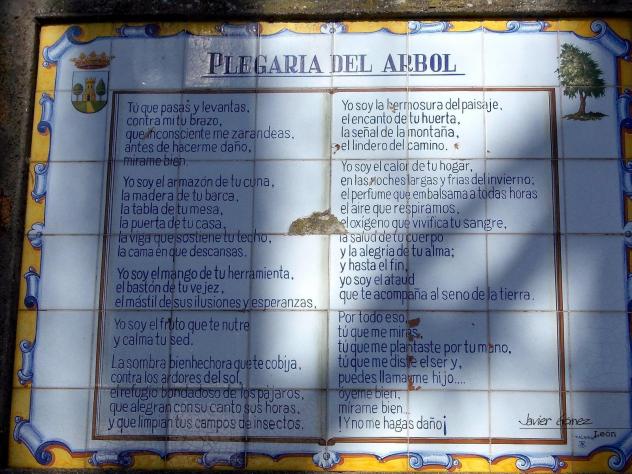 PLEGARIA DEL ARBOL
Tú que pasas y levantas,
contra mi tu brazo,
que inconsciente me zarandeas,
antes de hacerme daño,
mírame bien.
Yo soy el armazón de tu cuna,
la madera de tu barca,
la tabla de tu mesa,
la puerta de tu casa,
la viga que sostiene tu techo,
la cama en que descansas.
Yo soy el mango de tu herramienta,
el bastón de tu vejez,
el mástil de sus ilusiones y esperanzas,
Yo soy el fruto que te nutre
y calma tu sed.
La sombra bienhechora que te cobija,
contra los ardores del sol,
el refugio bondadoso de los pájaros,
que alegran con su canto sus horas,
y que limpian tus campos de insectos.
Yo soy la hermosura del paisaje,
el encanto de tu huerta,
la señal de la montaña,
el lindero del camino.
Yo soy el calor de tu hogar,
en las noches largas y frias del invierno;
el perfume que embalsama a todas horas
el aire que respiramos,
el oxigeno que vivifica tu sangre,
la salud de tu cuerpo
y la alegria de tu alma;
y hasta el fin,
yo soy el ataud
que te acompaña al seno de la tierra.
Por todo eso,
tú que me miras,
tú que me plantaste por tu mano,
tú que me diste el ser y,
puedes llamarme hijo....
óyeme bien,
mirame bien...
!Y no me hagas daño¡
Javier Gómez
León